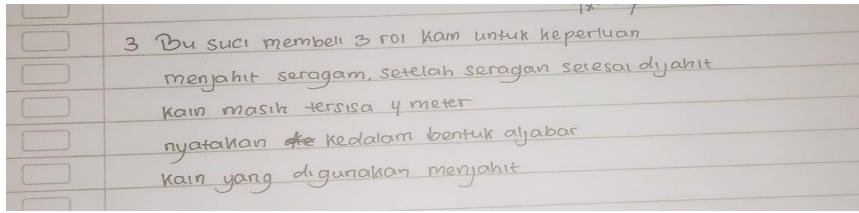 3 Bu suci membeli 3 rol kain untuk keperluan
menjahit seragam, setelah seragan selesai dijahit
kain masih tersisa 4 meter
nyatakan kedalam bentuk aljabar
kain yang digunakan menjahit